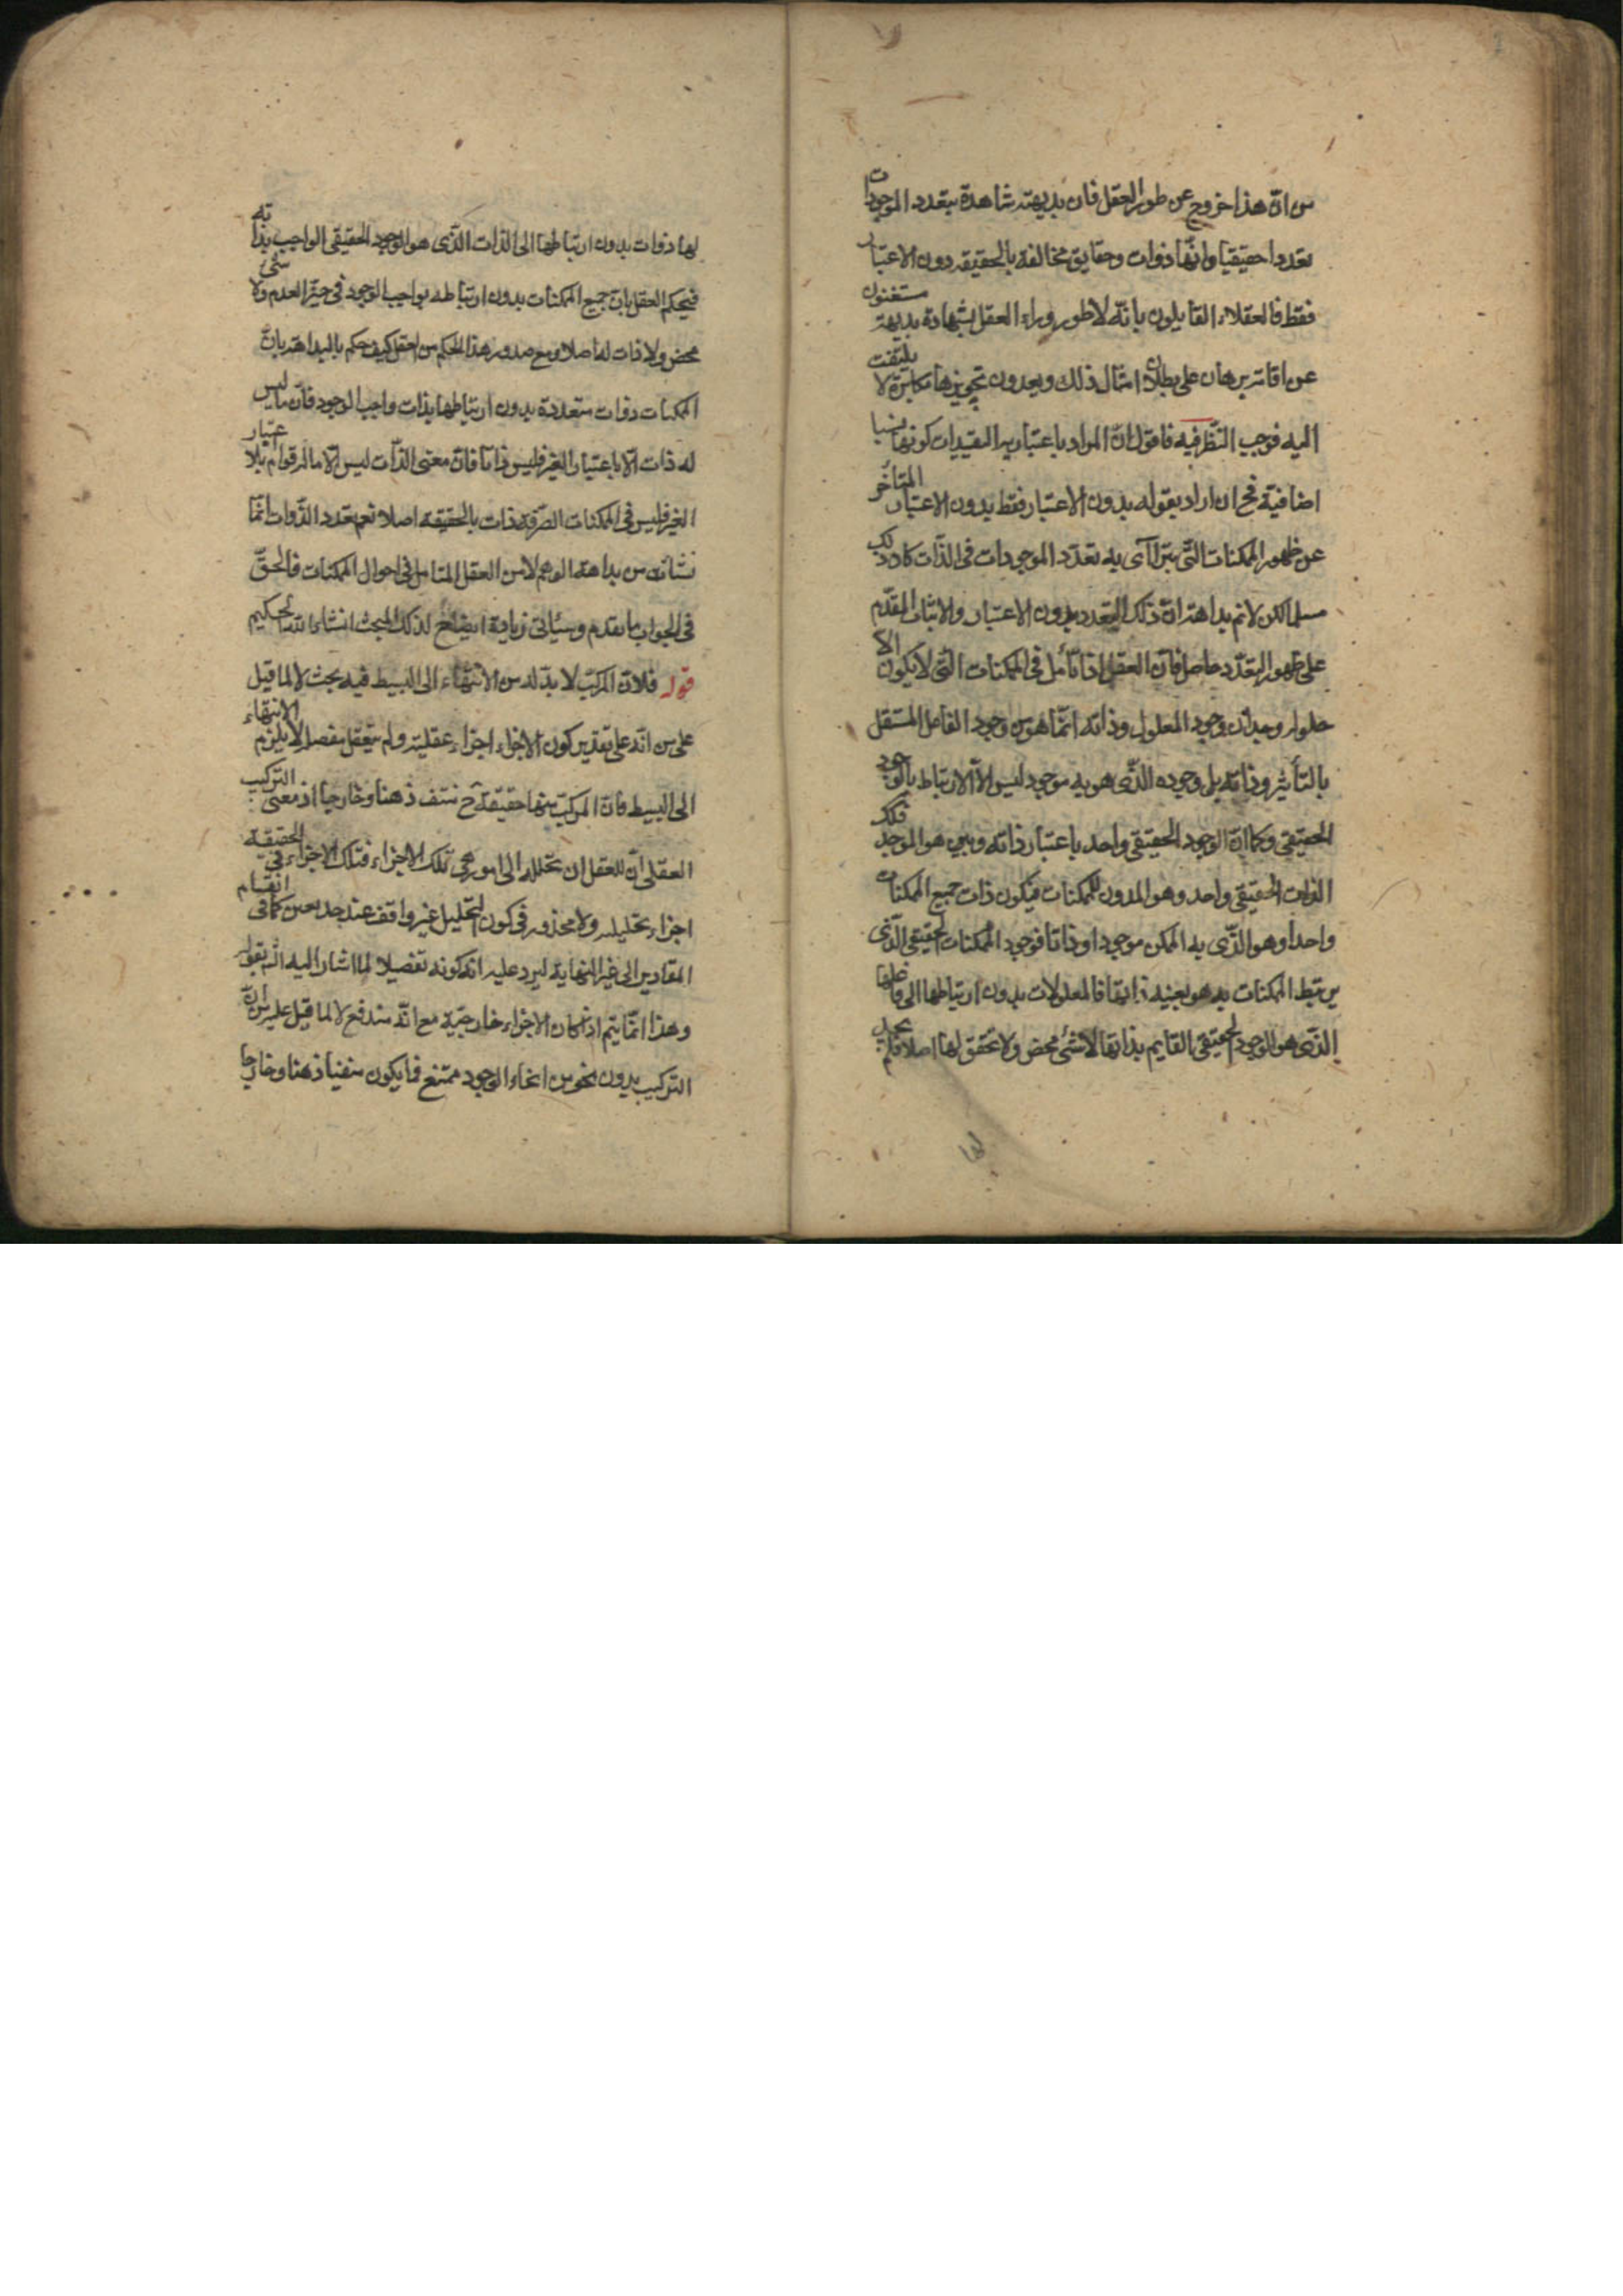 من انّ هذا خروج عن طور العقل فان بديهته شاهدة بتعدد الموجودات
تعددا حقيقيا وانّها ذوات وحقايق مخالفة بالحقيقة دون الاعتبار
فقط فالعقلاء القايلون بانّه لا طور وراء العقل بشهادة بديهته مستغنون
عن اقامة برهان على بطلان امثال ذلك ويعدون تجويزها مكابرة لا يلتفت
اليه فوجب النّظر فيه فاقول انّ المراد باعتبارية التقيدات كونها نسبا
اضافية فح ان اراد بقوله بدون الاعتبار فقط بدون الاعتبار المتأخر
عن ظهور الممكنات التّى يتراآى به تعدّد الموجودات فى الذّات
مسلم لكن لا تم بداهة انّ ذلك التعدد بدون الاعتبار والاثبات المقدّم
على ظهور التعدّد حاصل فانّ العقل اذا تأمل فى الممكنات التّى لا يكون الا
معلولا وجد انّ وجود المعلول وذاته انّما هو من وجود الفاعل المستقل
بالتأثير وذاته بل وجوده الذّى هو به موجود ليس الاّ الارتباط بالوجود
الحقيقى وكما انّ الوجود الحقيقى واحد باعتبار ذاته هو الموجد فكك
الذات الحقيقى واحد وهو للممكنات فيكون ذات جميع الممكنات
واحدا وهو الذّى به الممكن موجودا وذاتا فوجود الممكنات الحقيقى الذّى
يرتبط الممكنات به هو بعينه ذاتها فالمعلولات بدون ارتباطها الى فاعلها
الذّى هو الوجود الحقيقى القايم بذاتها لا شئ محض ولا تحقق لها اصلا فلم يجد
لها
لها ذوات بدون ارتباطها الى الذات الذّى هو الوجود الحقيقى الواجب بذاته
فيحكم العقل بانّ جميع الممكنات بدون ارتباطه بواجب الوجود فى حيّز العدم ولا شئ
محض ولا ذات لها اصلا ومع صدور هذا الحكم من العقل كيف حكم بالبداهة بانّ
الممكنات ذوات متعددة بدون ارتباطها بذات واجب الوجود فانّ ما ليس
له ذات الاّ باعتبار الغير فليس ذاتا فانّ معنى الذّات ليس الاّ ما له قوام بلا اعتبار
الغير فليس فى الممكنات الصّرفة ذات بالحقيقة اصلا نعم تعدد الذّوات انّما
نشأت من بداهة الوهم لا من العقل المتامل فى احوال الممكنات فالحقّ
فى الجواب ما تقدم وسيأتى زيادة ايضاح لذلك المبحث انشاء الله الحكيم
قوله فلانّ المركب لا بدّ له من الانتهاء الى البسيط فيه بحث لا لما قيل
على من انّه على تقدير كون الاجزاء اجزاء عقلية ولم يتعقل مفصلا لا يلزم الانتهاء
الى البسيط فانّ المركب منها حقيقة ح منتف ذهنا وخارجا اذ معنى التركيب
العقلى انّ للعقل ان يحلله الى امور هى تلك الاجزاء فتلك الاجزاء فى الحقيقة
اجزاء تحليلية ولا محذور فى كون التحليل غير واقف عند حد معين كما فى انقسام
المقادير الى غير النهاية ليرد عليه انه كونه تفصيلا لما اشار اليه بقوله
وهذا انّما يتم اذا كان الاجزاء خارجيّة مع انّه مندفع لا لما قيل عليه من انّ
التركيب بدون نحو من انحاء الوجود ممتنع فما يكون منفيا ذهنا وخارجا